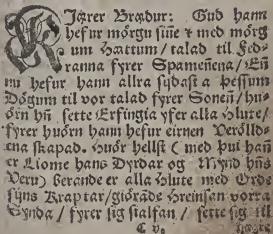 Kiærer Brædur: Gud hann
hefur mörgu sine & med mörg
um Hættum / talad til Fed-
ranna fyrer Spameñena / Eñ
nu hefur hann allra sijdast a þessum
Dögum til vor talad fyrer Soneñ / hu-
örn hñ sette Erfingia yfer alla Hlute /
fyrer huörn hann hefur eirnen Veröllð-
ena skapad. Huör hellst (med þui hañ
er Liome hans Dyrdar og Mynd hñs
Veru) berande er alla Hlute med Orde
sijns Kraptar / giörade Hreinsan vorra
Synda / fyrer sig sialfan / sette sig til
C v.